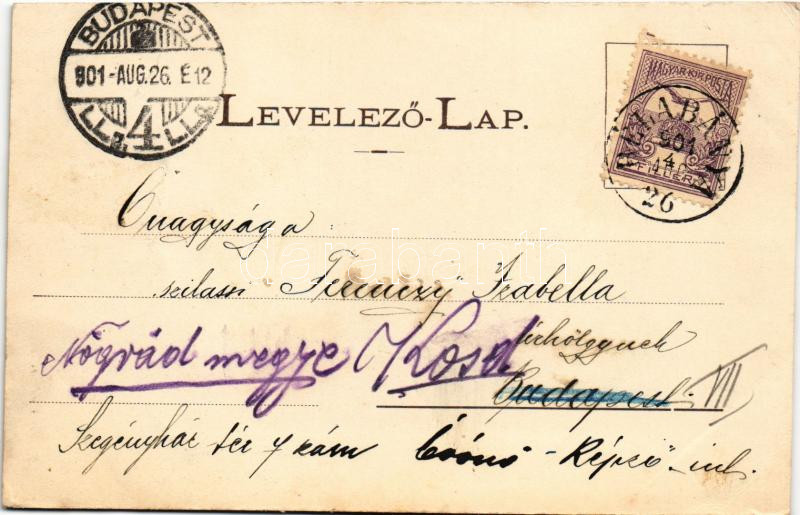 BUDAPEST
901-AUG.26. É12
4
LEVELEZŐ-LAP.
MAGYAR KIR. POSTA
FILLÉR
BÉLABÁNYA
901
26
Őnagysága
szilassi Ferenczy Izabella
úrhölgynek
Nógrád megye Kosd
Budapest VII
Szegényház tér 7 szám Óvónő-Képző-int.
darabanth